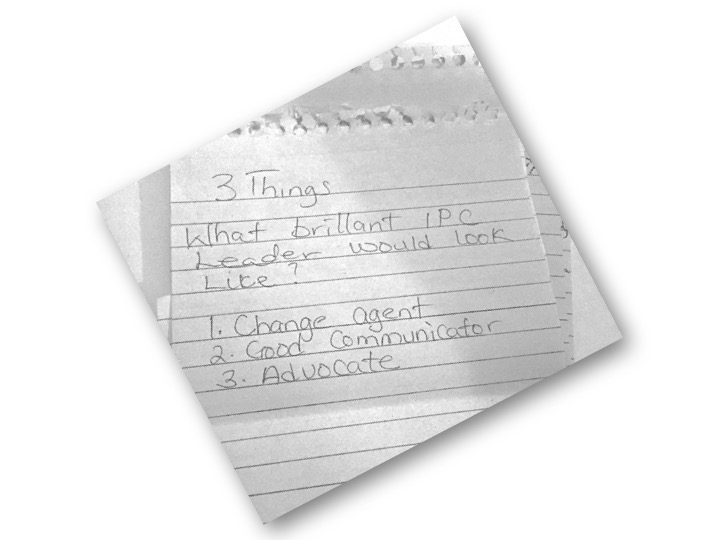 3 Things
What brillant IPC
Leader would look
Like?
1. Change agent
2. Good Communicator
3. Advocate